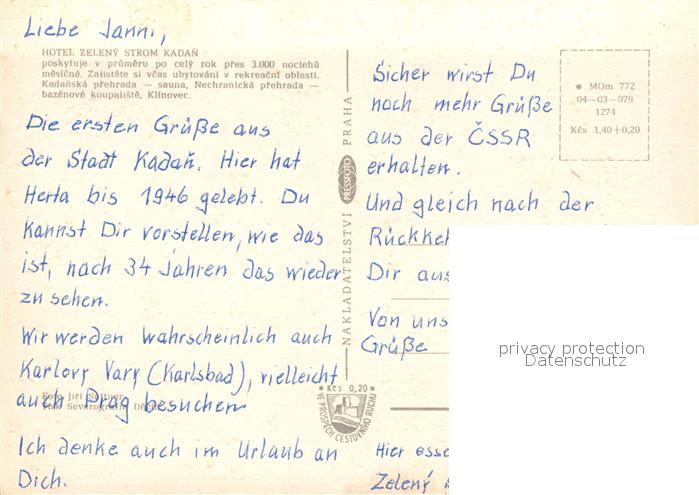 Liebe Janni,
HOTEL ZELENÝ STROM KADAŇ
poskytuje v průměru po celý rok přes 3.000 noclehů
měsíčně. Zajistěte si včas ubytování v rekreační oblasti.
Kadaňská přehrada — sauna, Nechranická přehrada —
bazénové koupaliště, Klínovec.
Die ersten Grüße aus
der Stadt Kadaň. Hier hat
Herta bis 1946 gelebt. Du
kannst Dir vorstellen, wie das
ist, nach 34 Jahren das wieder
zu sehen.
Wir werden wahrscheinlich auch
Karlovy Vary (Karlsbad), vielleicht
auch Prag besuchen
Foto Jiří
Tisk Severografia
Ich denke auch im Urlaub an
Dich.
NAKLADATELSTVÍ PRESSFOTO PRAHA
Kčs 0,20
VE PROSPĚCH CESTOVNÍHO RUCHU
MOm 772
04—03—079
1274
Kčs 1,40+0,20
Sicher wirst Du
noch mehr Grüße
aus der ČSSR
erhalten.
Und gleich nach der
Rückkeh
Dir aus
Von uns
Grüße
Hier esse
Zelený
privacy protection
Datenschutz